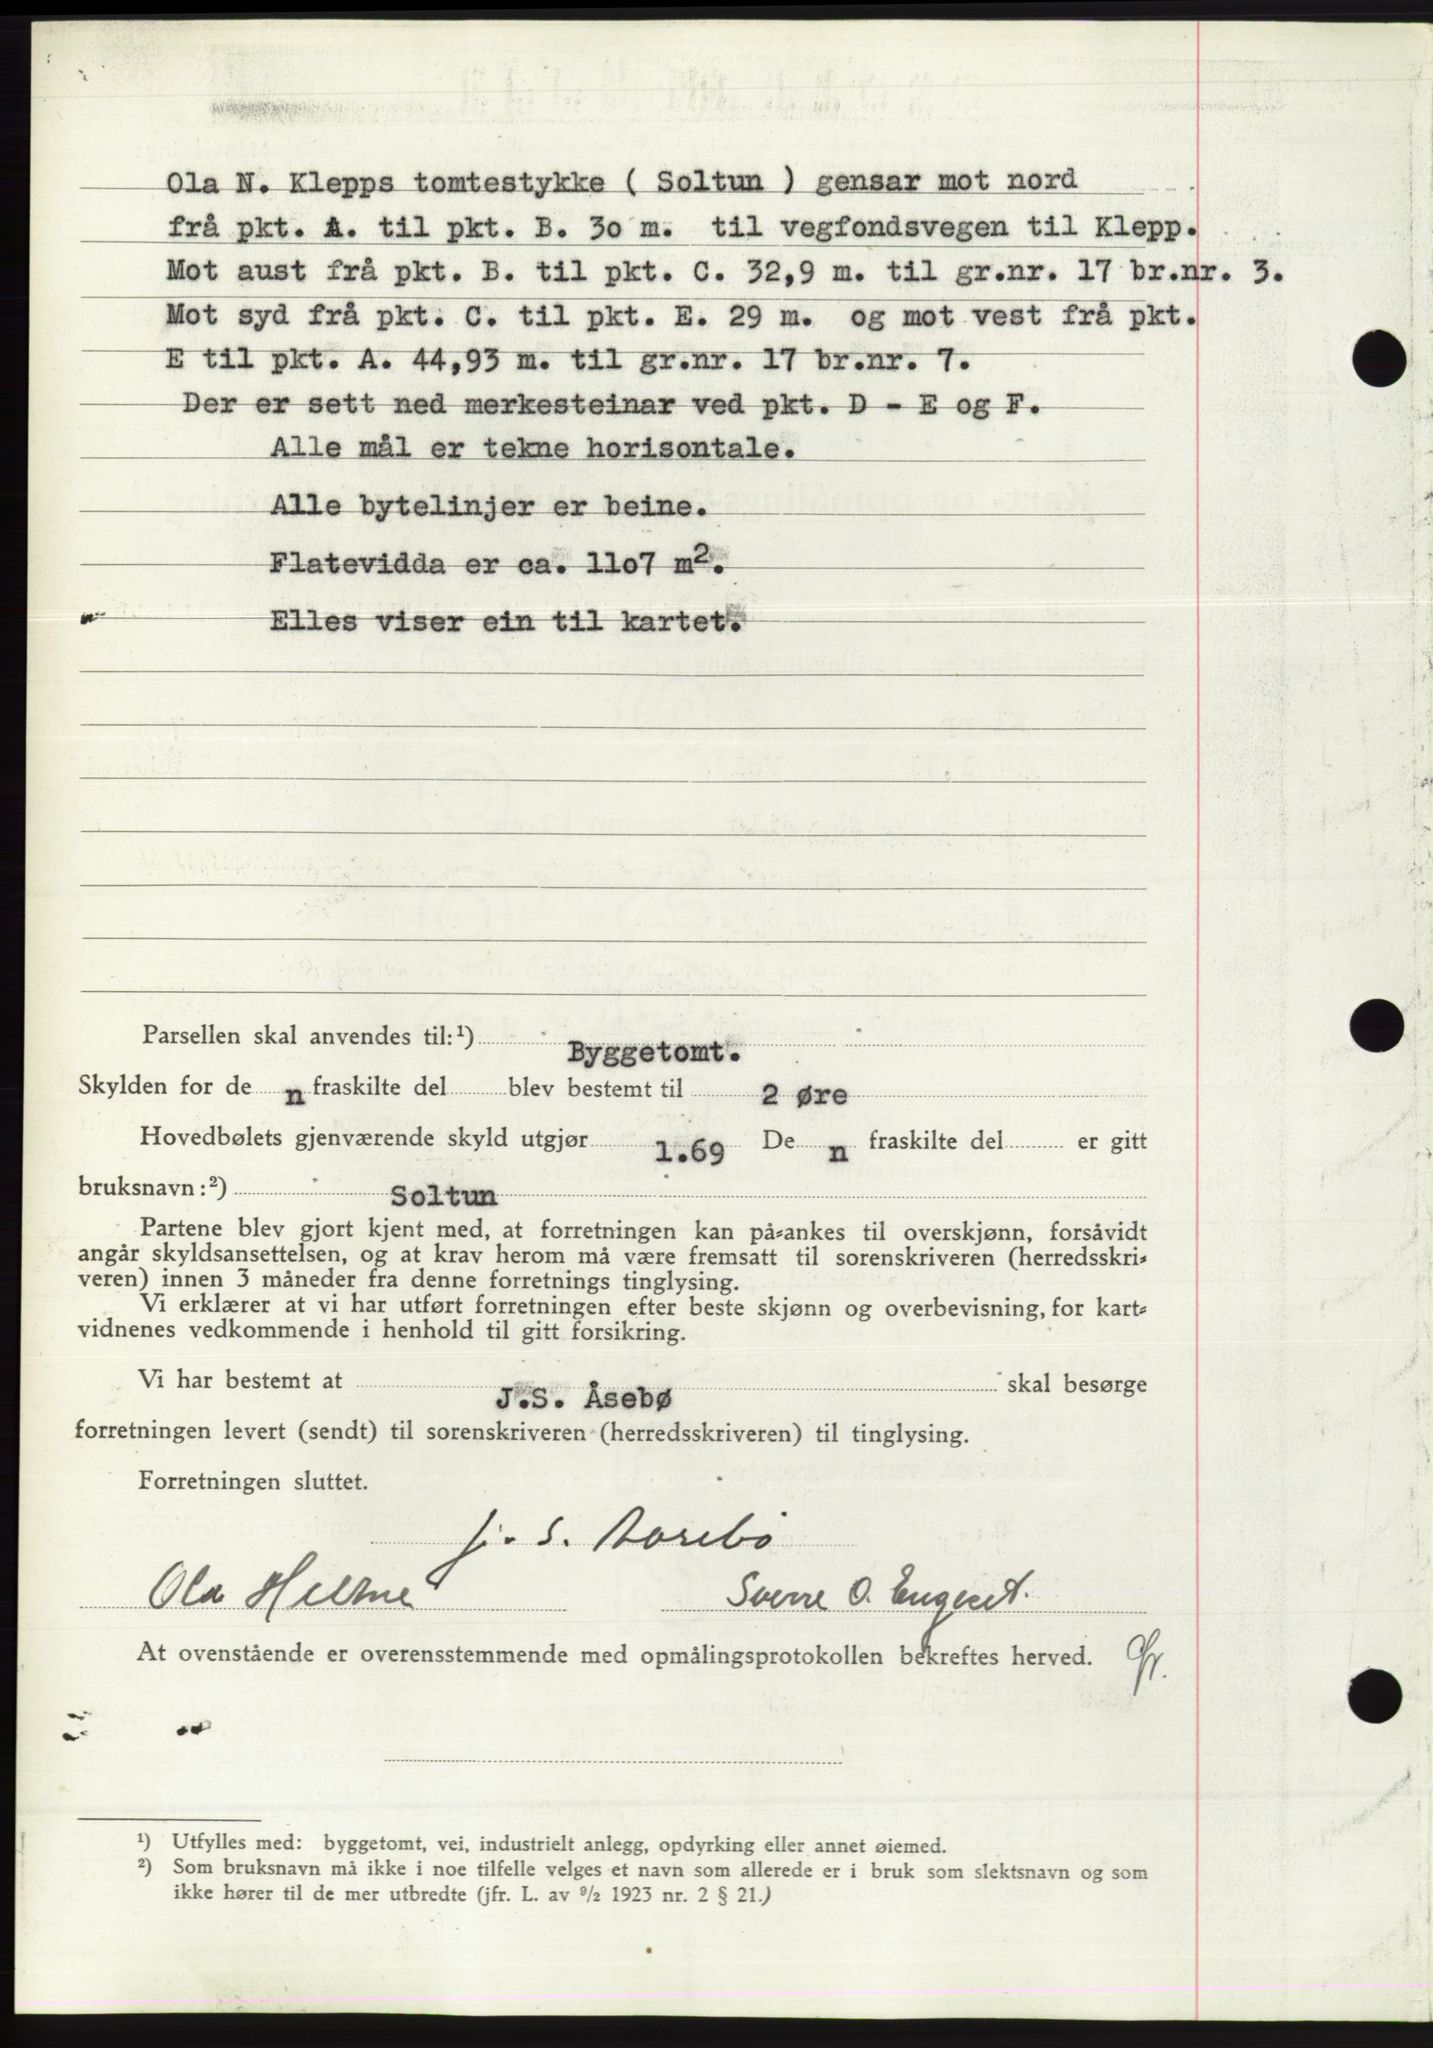 Ola N. Klepps tomtestykke ( Soltun ) gensar mot nord
frå pkt. A. til pkt. B. 3o m. til vegfondsvegen til Klepp.
Mot aust frå pkt. B. til pkt. C. 32,9 m. til gr.nr. 17 br.nr. 3.
Mot syd frå pkt. C. til pkt. E. 29 m. og mot vest frå pkt.
E til pkt. A. 44,93 m. til gr.nr. 17 br.nr. 7.
Der er sett ned merkesteinar ved pkt. D - E og F.
Alle mål er tekne horisontale.
Alle bytelinjer er beine.
Flatevidda er ca. 11o7 m².
Elles viser ein til kartet.
Parsellen skal anvendes til:¹) Byggetomt.
Skylden for de n fraskilte del blev bestemt til 2 øre
Hovedbølets gjenværende skyld utgjør 1.69 De n fraskilte del er gitt
bruksnavn:²) Soltun
Partene blev gjort kjent med, at forretningen kan på-ankes til overskjønn, forsåvidt
angår skyldsansettelsen, og at krav herom må være fremsatt til sorenskriveren (herredsskri-
veren) innen 3 måneder fra denne forretnings tinglysing.
Vi erklærer at vi har utført forretningen efter beste skjønn og overbevisning, for kart-
vidnenes vedkommende i henhold til gitt forsikring.
Vi har bestemt at J.S. Åsebø skal besørge
forretningen levert (sendt) til sorenskriveren (herredsskriveren) til tinglysing.
Forretningen sluttet.
J. S. Aasebø
Ola Sverre O. Engeset.
At ovenstående er overensstemmende med opmålingsprotokollen bekreftes herved.
¹) Utfylles med: byggetomt, vei, industrielt anlegg, opdyrking eller annet øiemed.
²) Som bruksnavn må ikke i noe tilfelle velges et navn som allerede er i bruk som slektsnavn og som
ikke hører til de mer utbredte (jfr. L. av ⁹/₂ 1923 nr. 2 § 21.)